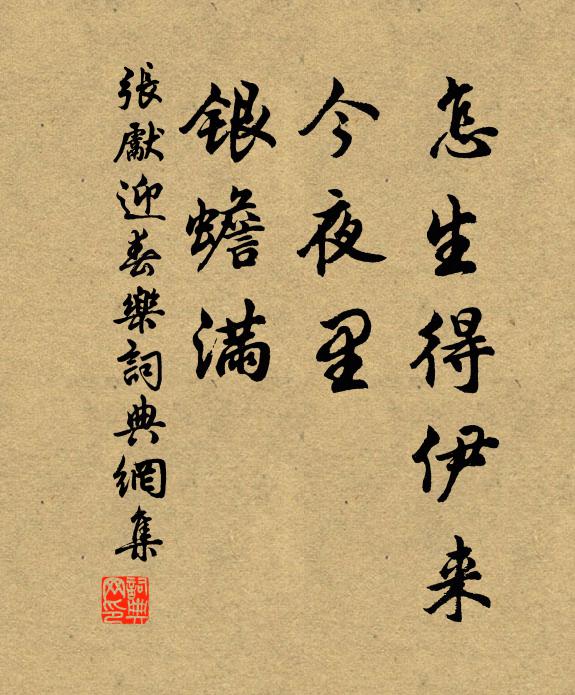 怎生得伊来
今夜里
银蟾满
張獻迎春樂詞典網集
詞典网印